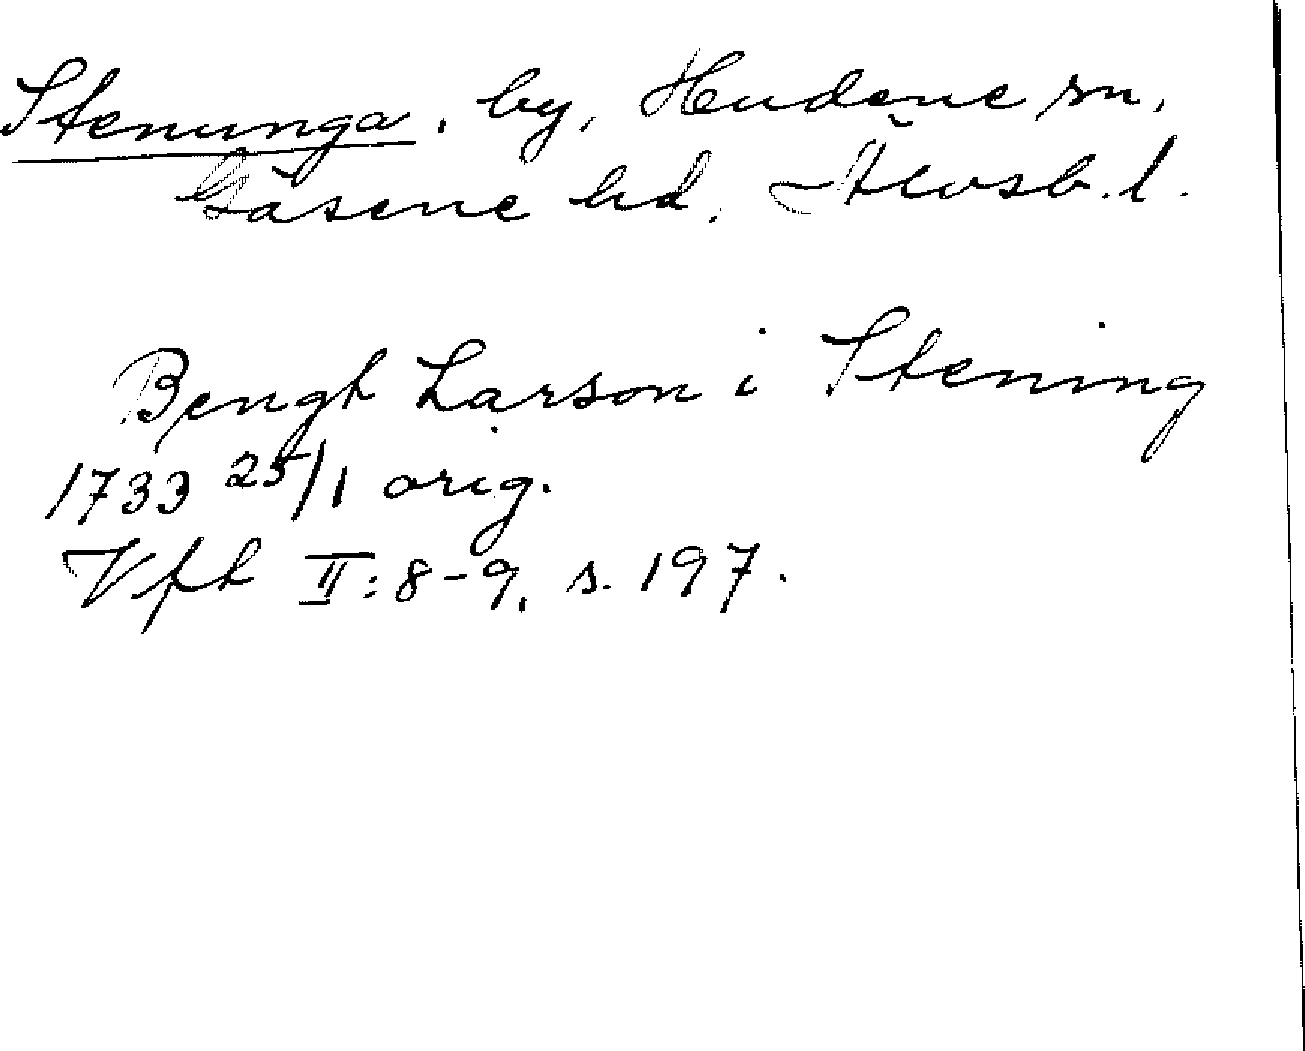 Stenunga, by, Hudene sn,
Gäsene hd, Älvsb. l.
Bengt Larson i Stening
1733 25/1 orig.
Vft II: 8-9, s. 197.